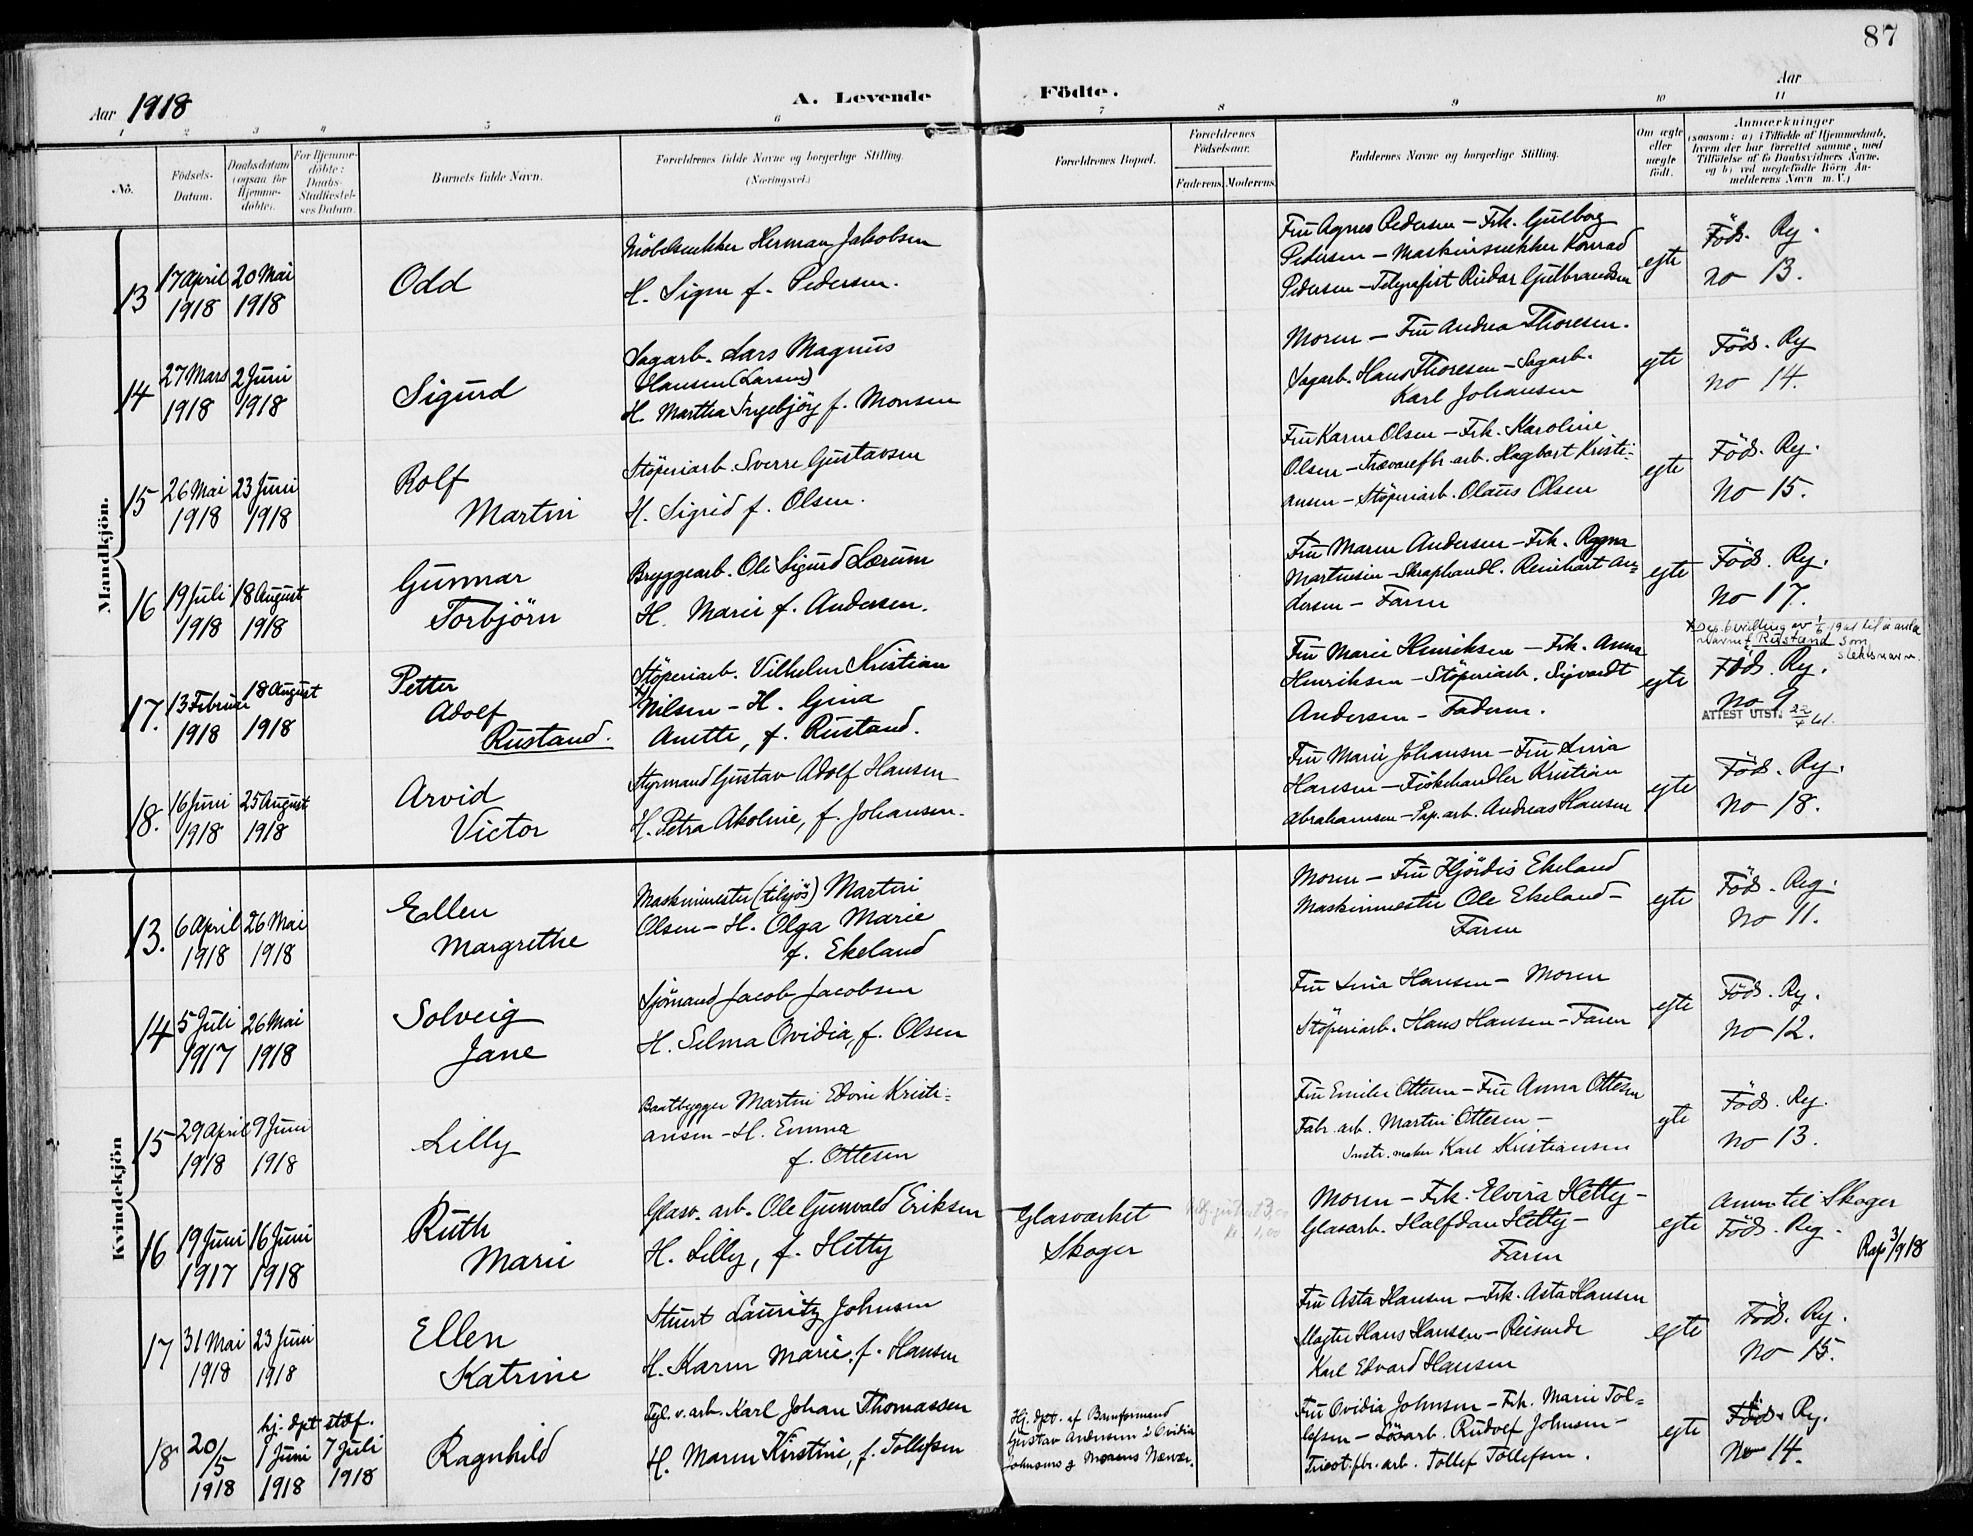 87
Aar 1918
A. Levende Födte.
Aar
1 2 3 4 5 6 7 8 9 10 11
No.
Födsels-
Datum.
Daabsdatum
(ogsaa for
Hjemme-
döbte).
For Hjemme-
döbte:
Daabs-
Stadfæstel-
ses Datum.
Barnets fulde Navn.
Forældrenes fulde Navne og borgerlige Stilling.
(Næringsvei.)
Forældrenes Bopæl.
Forældrenes
Födselsaar.
Faderens. Moderens.
Faddernes Navne og borgerlige Stilling.
Om ægte
eller
uægte
födt.
Anmærkninger
(saasom: a) i Tilfælde af Hjemmedaab,
hvem der har forrettet samme, med
Tilföielse af to Daabsvidners Navne,
og b) ved uægtefödte Börn An-
melderens Navn m. V.)
Mandkjön.
13
17 April
1918
20 Mai
1918
Odd
Möbelsnekker Herman Jakobsen
H. Signe f. Pedersen.
Fru Agnes Pedersen – Frk. Gulborg
Pedersen – Maskinsnekker Konrad
Pedersen – Telegrafist Reidar Gulbrandsen
egte
Föds. Reg.
no 13.
14
27 Mars
1918
2 Juni
1918
Sigurd
Sagarb. Lars Magnus
Hansen (Larsen)
H. Martha Ingebjörg f. Monsen
Moren – Fru Andrea Thoresen.
Sagarb. Hans Thoresen – Sagarb.
Karl Johansen
egte
Föds. Reg
no 14.
15
26 Mai
1918
23 Juni
1918
Rolf
Martin
Stöperiarb. Sverre Gustavsen
H. Sigrid f. Olsen.
Fru Karen Olsen – Frk. Karoline
Olsen – Trævarefbr. arb. Hagbart Kristi-
ansen – Stöperiarb. Olaus Olsen
egte
Föds. Reg.
No 15.
16
19 Juli
1918
18 August
1918
Gunnar
Torbjörn
Bryggearb. Ole Sigurd Lærum
H. Marie f. Andersen.
Fru Maren Andersen – Frk. Ragna
Martinsen – Skraphandl. Reinhart An-
dersen – Faren
egte
Föds. Reg.
No 17.
17.
13 Februar
1918
18 August
1918
Petter
Adolf
Rustand.
Stöperiarb. Vilhelm Kristian
x) Nilsen – H. Gina
Anette, f. Rustand.
Fru Marie Henriksen – Frk. Anna
Henriksen – Stöperiarb. Sigvardt
Andersen – Faderen.
egte
x) Dep. bevilling av 1/6 1921 til å anta
navnet Rustand som
slektsnavn.
Föds. Reg.
No 9
ATTEST UTST. 22/4 41.
18.
16 Juni
1918
25 August
1918
Arvid
Victor
Styrmand Gustav Adolf Hansen
H. Petra Akoline, f. Johansen.
Fru Marie Johansen – Fru Lina
Hansen – Fiskehandler Kristian
Abrahamsen – Pap. arb. Andreas Hansen
egte
Föds. Reg.
No 18.
Kvindekjön
13.
6 April
1918
26 Mai
1918
Ellen
Margrethe
Maskinmester (tilsjös) Martin
Olsen – H. Olga Marie
f. Ekeland
Moren – Fru Hjördis Ekeland
Maskinmester Ole Ekeland –
Faren
egte
Föds. Reg.
No 11.
14
5 Juli
1917
26 Mai
1918
Solveig
Jane
Sjömand Jacob Jacobsen
H. Selma Ovidia, f. Olsen
Fru Lina Hansen – Moren
Stöperiarb. Hans Hansen – Faren
egte
Föds. Reg.
No 12.
15
29 April
1918
9 Juni
1918
Lilly
Baatbygger Martin Edvin Kristi-
ansen – H. Emma
f. Ottesen
Fru Emilie Ottesen – Fru Anna Ottesen
Fabr. arb. Martin Ottesen –
Instr. maker Karl Kristiansen
egte
Föds. Reg.
no 13.
16
19 Juni
1917
16 Juni
1918
Ruth
Marie
Glasv. arb. Ole Gunvald Eriksen
H. Lilly, f. Hetty
Glasværket
Skoger
Moren – Frk. Elvira Hetty –
Glasarb. Halfdan Hetty –
Faren
egte
Anm. til Skoger
Föds. Reg.
Rap 3/9 18
17
31 Mai
1918
23 Juni
1918
Ellen
Katrine
Stuert Lauritz Johnsen
H. Karen Marie, f. Hansen
Fru Asta Hansen – Frk. Asta Hansen
Magter Hans Hansen – Reisende
Karl Edvard Hansen
egte
Föds. Reg.
No 15.
18
20/5
1918
hj. dpt
1 Juni
1918
staf.
7 Juli
1918
Ragnhild
Tegl. v. arb. Karl Johan Thomassen
H. Maren Kirstine, f. Tollefsen
Hj. dpt. af Barnformand
Gustav Andersen i Ovidia
Johnsens & Morens Nærvær.
Fru Ovidia Johnsen – Frk. Marie Tol-
lefsen – Lösarb. Rudolf Johnsen –
Tricot. fbr. arb. Tollef Tollefsen.
egte
Föds. Reg.
No 14.